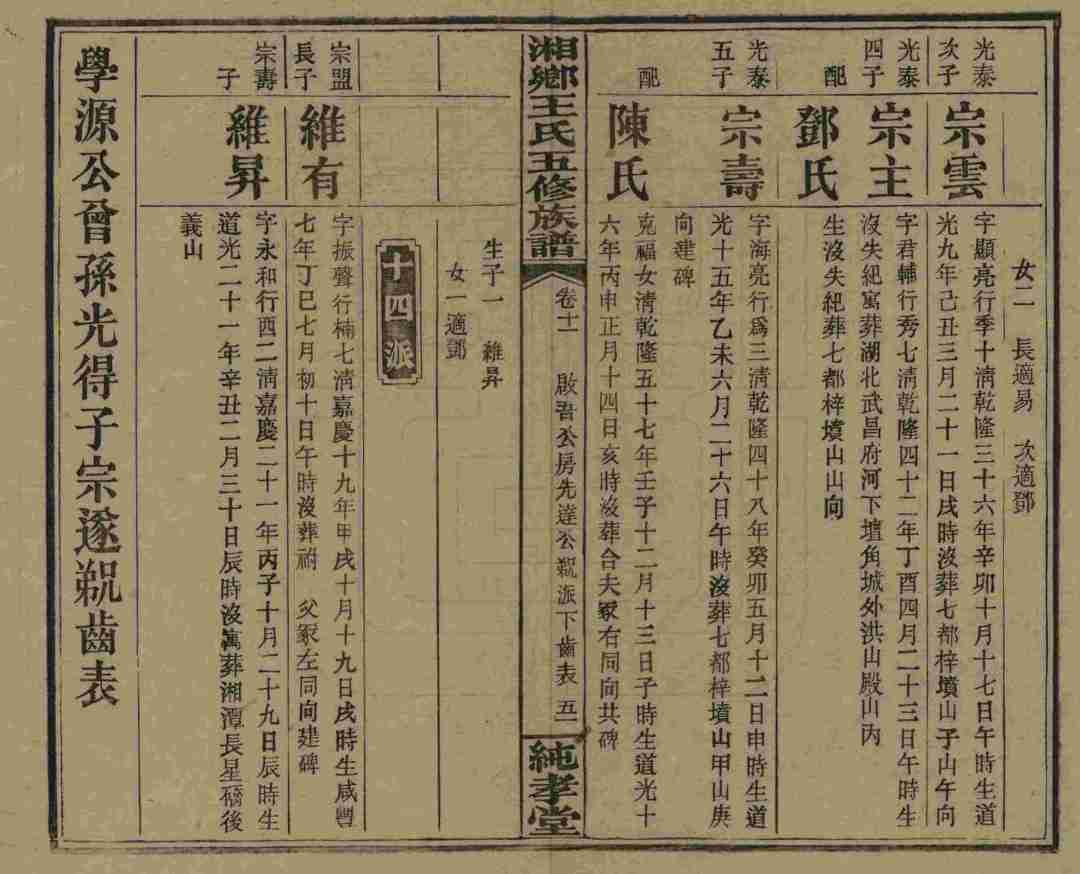 女二 長適易 次適鄧
光泰
次子
宗雲
字顯亮行季十淸乾隆三十六年辛卯十月十七日午時生道
光九年己丑三月二十一日戌時沒葬七都梓墳山子山午向
光泰
四子
宗主
字君輔行秀七淸乾隆四十二年丁酉四月二十三日午時生
沒失紀寓葬湖北武昌府河下壇角城外洪山殿山內
配
鄧氏
生沒失紀葬七都梓墳山山向
光泰
五子
宗壽
字海亮行爲三淸乾隆四十八年癸卯五月十二日申時生道
光十五年乙未六月二十六日午時沒葬七都梓墳山甲山庚
向建碑
配
陳氏
克福女淸乾隆五十七年壬子十二月十三日子時生道光十
六年丙申正月十四日亥時沒葬合夫冢右同向共碑
湘鄉王氏五修族譜
卷十一
啟吾公房先達公派下齒表 五
純孝堂
生子一 維昇
女一適鄧
十四派
宗盟
長子
維有
字振聲行楠七淸嘉慶十九年甲戌十月十九日戌時生咸豐
七年丁巳七月初十日午時沒葬祔 父冢左同向建碑
宗壽
子
維昇
字永和行西二淸嘉慶二十一年丙子十月二十九日辰時生
道光二十一年辛丑二月三十日辰時沒寓葬湘潭長星橋後
義山
學源公曾孫光得子宗遂派齒表